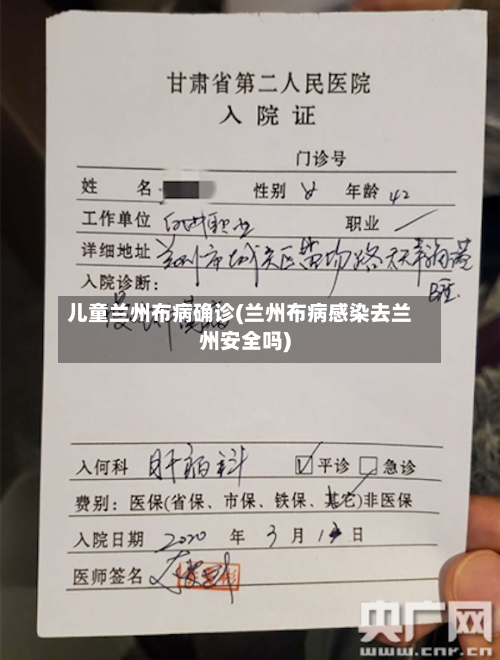 甘肃省第二人民医院
入院证
门诊号
姓 名 性别 女 年龄 42
工作单位 职业
详细地址 兰州市城关区苗圃路
入院诊断:
儿童兰州布病确诊(兰州布病感染去兰
州安全吗)
入何科 肝病科 ☑平诊 □急诊
费别: 医保(省保、市保、铁保、其它)非医保
入院日期 2020 年 3 月 日
医师签名
央广网
www.cnr.cn